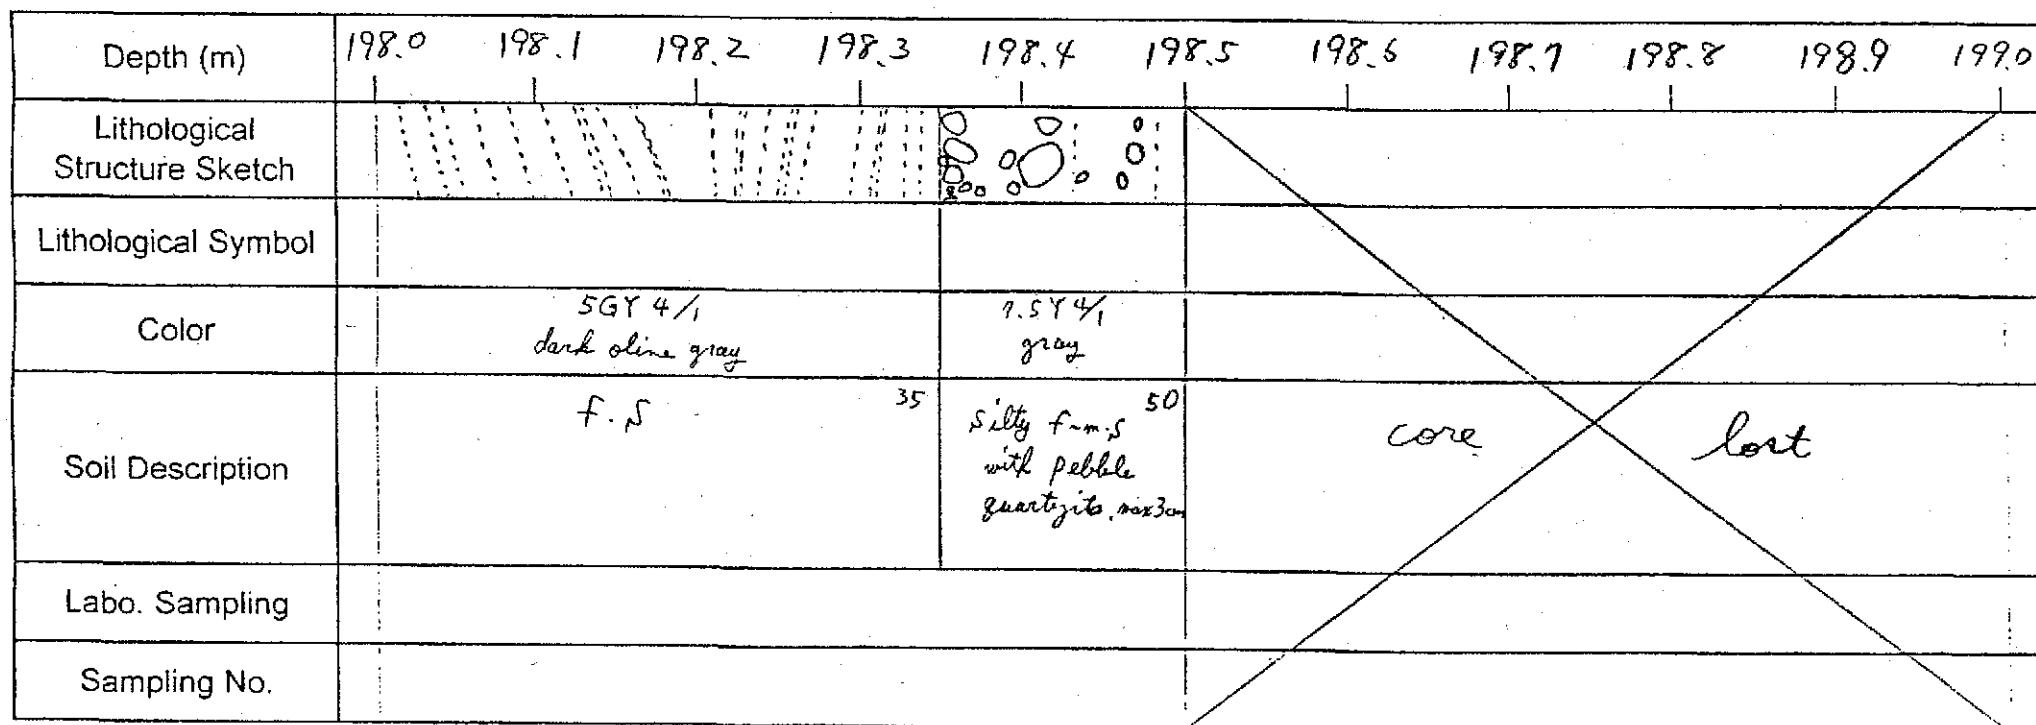 Depth (m) 198.0 198.1 198.2 198.3 198.4 198.5 198.6 198.7 198.8 198.9 199.0
Lithological
Structure Sketch
Lithological Symbol
Color
5GY 4/1
dark oline gray
7.5Y 4/1
gray
Soil Description
f.S
35
50
silty f~m.S
with pebble
quartzite. max3cm
core lost
Labo. Sampling
Sampling No.